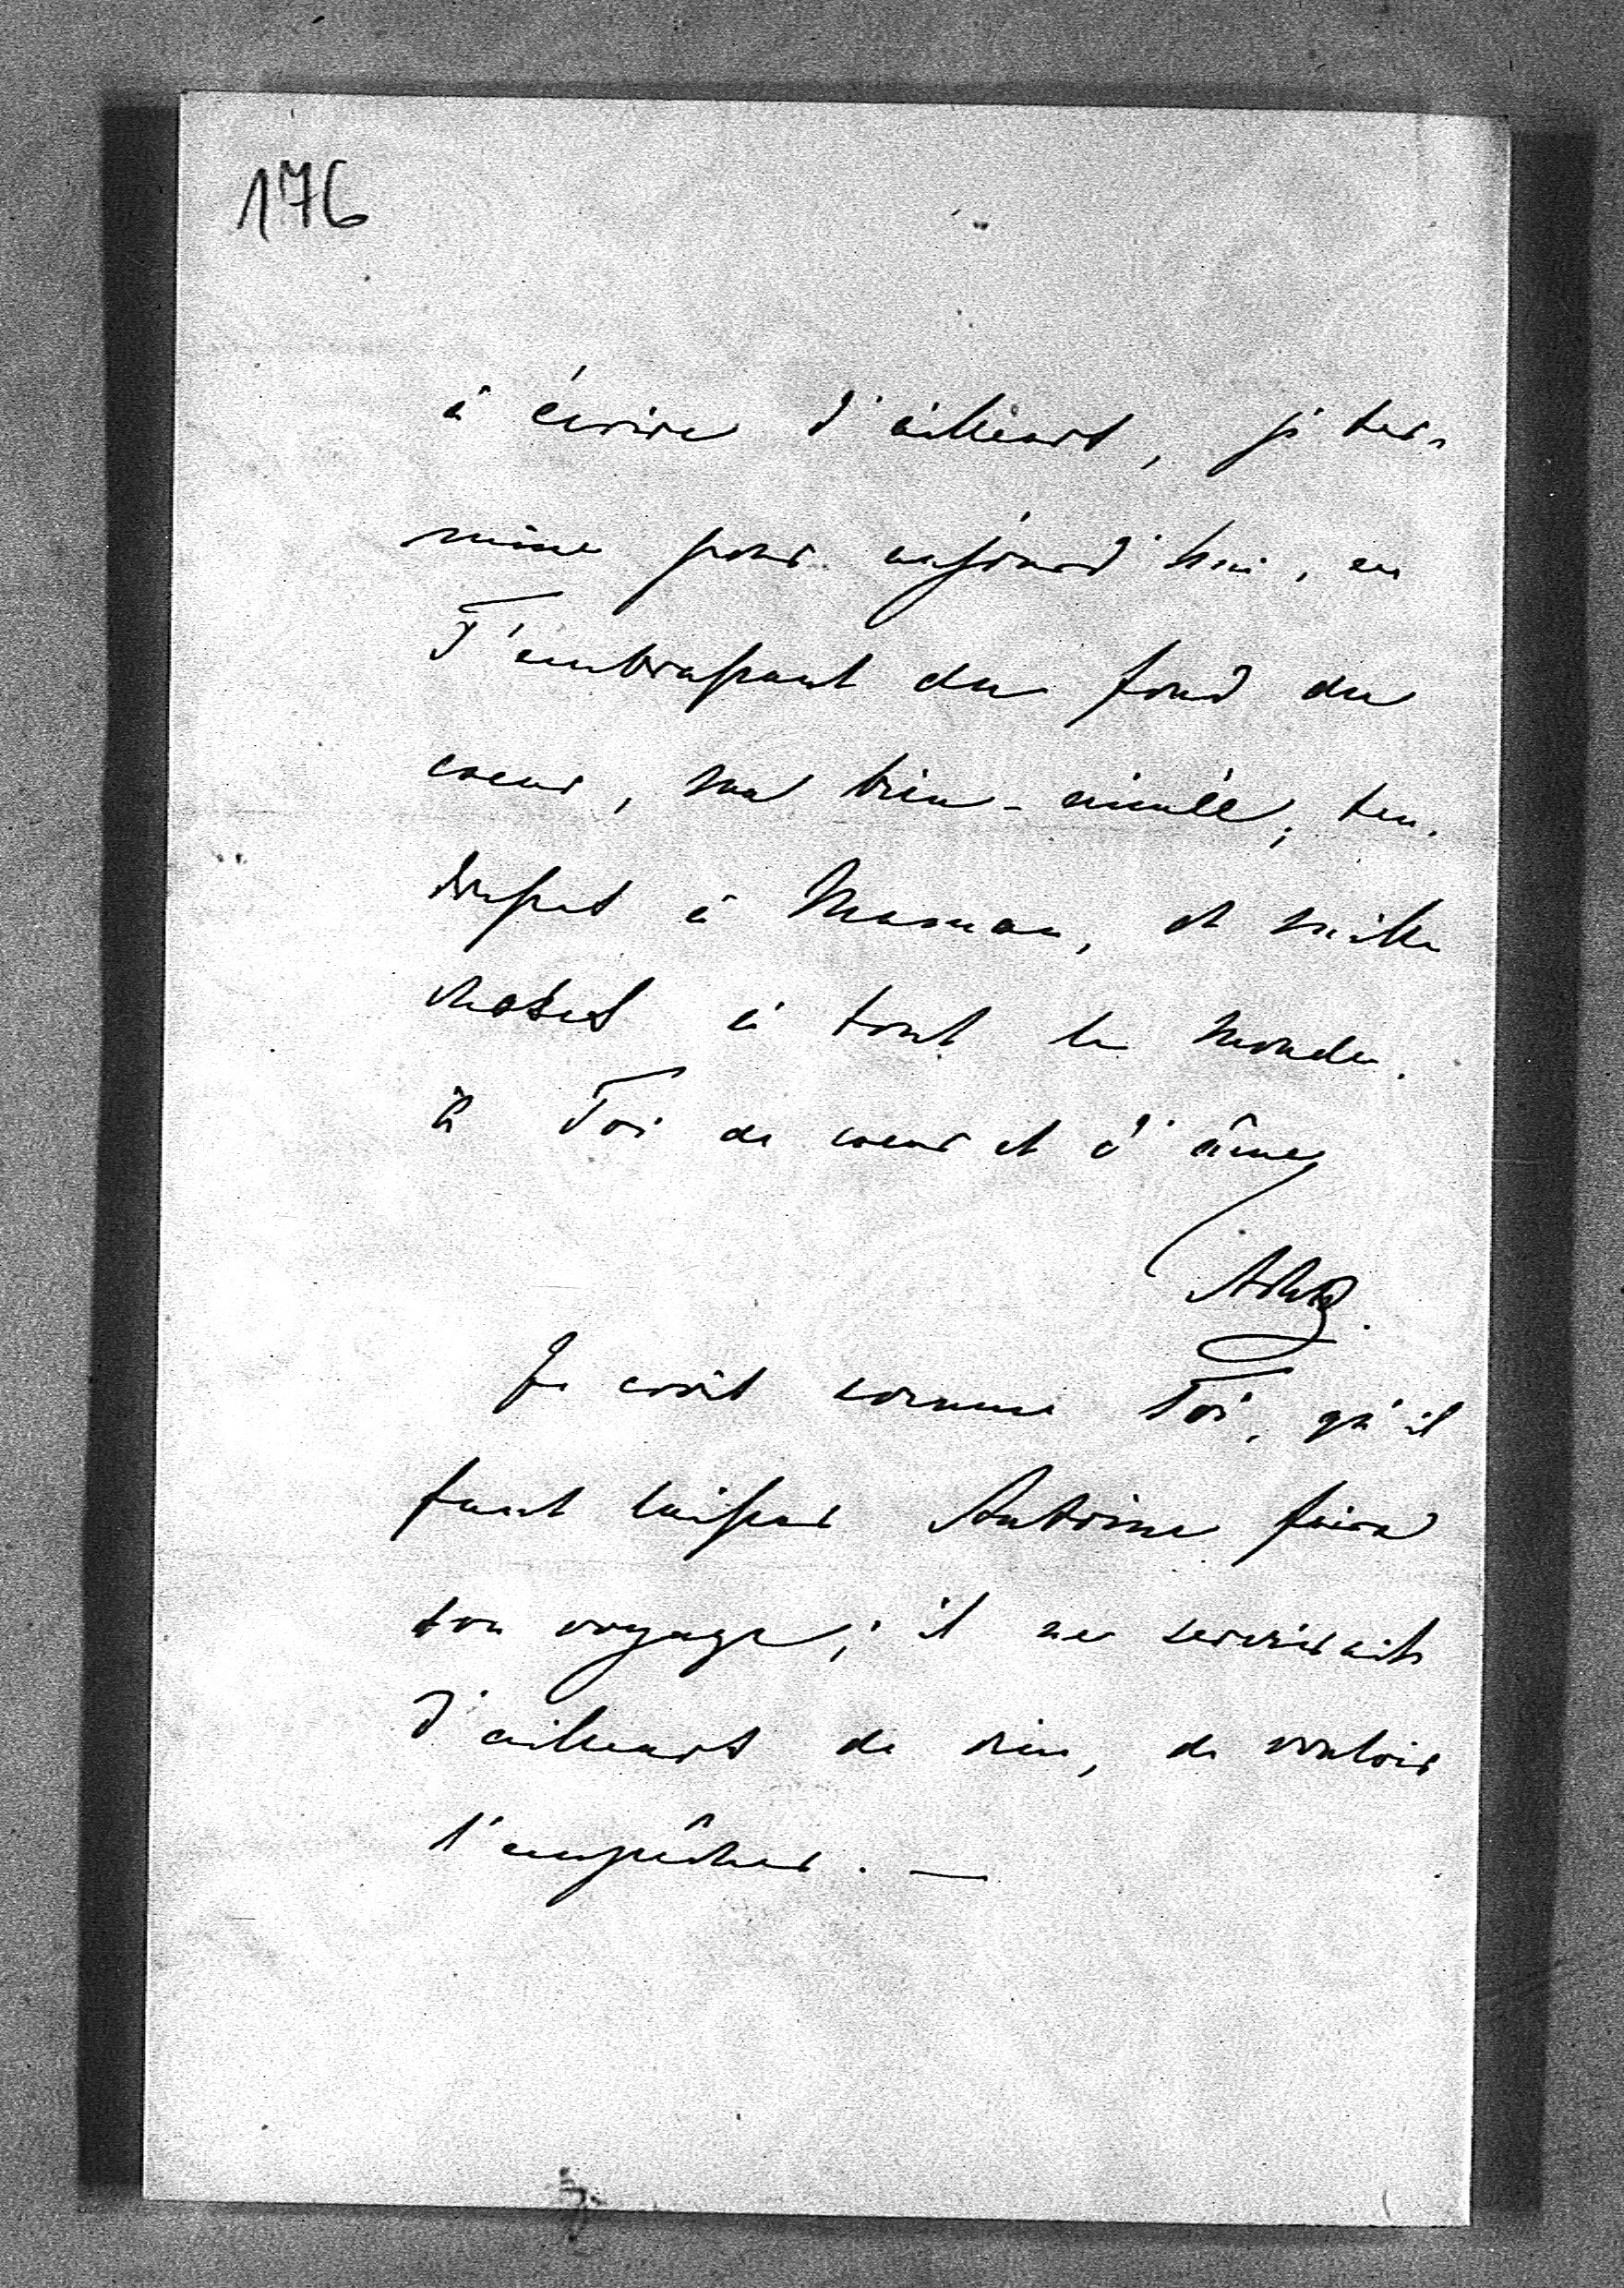 176
à écrire d'ailleurs, je ter-
mine pour aujourd'hui, en
T'embrassant du fond du
coeur, ma bien-aimée; ten-
dresses à Maman, et mille
choses à tout le monde.
à Toi de coeur et d'âme
Je crois comme Toi, qu'il
faut laisser Antoine faire
son voyage; il ne servirait
d'ailleurs de rien, de vouloir
l'empêcher. —